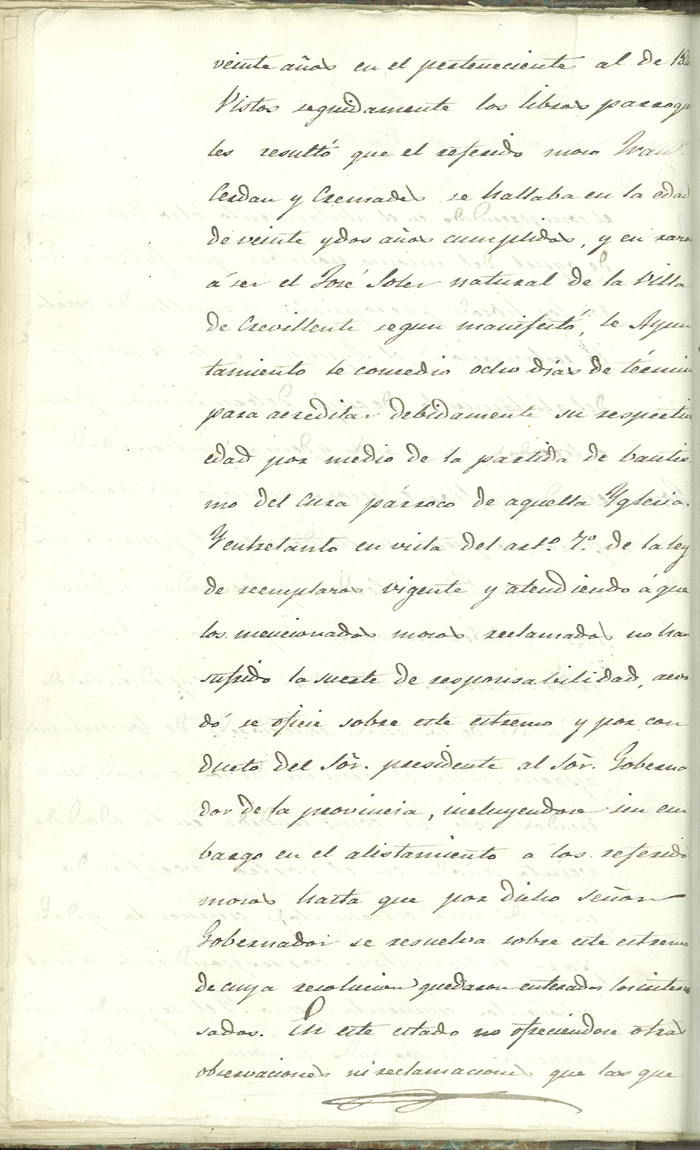 veinte años en el perteneciente al de 18
Vistos seguidamente los libros parroqu
les resultó que el referido mozo Fran.
Cerdan y Cremades se hallaba en la edad
de veinte y dos años cumplidos, y en razo
á ser el José Soler natural de la Villa
de Crevillente segun manifestó, le Ayun
tamiento le concedio ocho dias de término
para acreditar debidamente su respectiv
edad por medio de la partida de bautis
mo del cura párroco de aquella Yglesia.
Y entretanto en vista del artº. 7º. de la ley
de reemplazos vigente y atendiendo á que
los mencionados mozos reclamados no han
sufrido la suerte de responsabilidad, acor
dó se oficie sobre este estremo y por con
ducto del Sõr. presidente al Sõr. Goberna
dor de la provincia, incluyendose sin em
bargo en el alistamiento a los referido
mozos hasta que por dicho señor
Gobernador se resuelva sobre este estremo
de cuya resolucion quedaron enterados los intere
sados. En este estado no ofreciendose otras
observaciones ni reclamaciones que las que